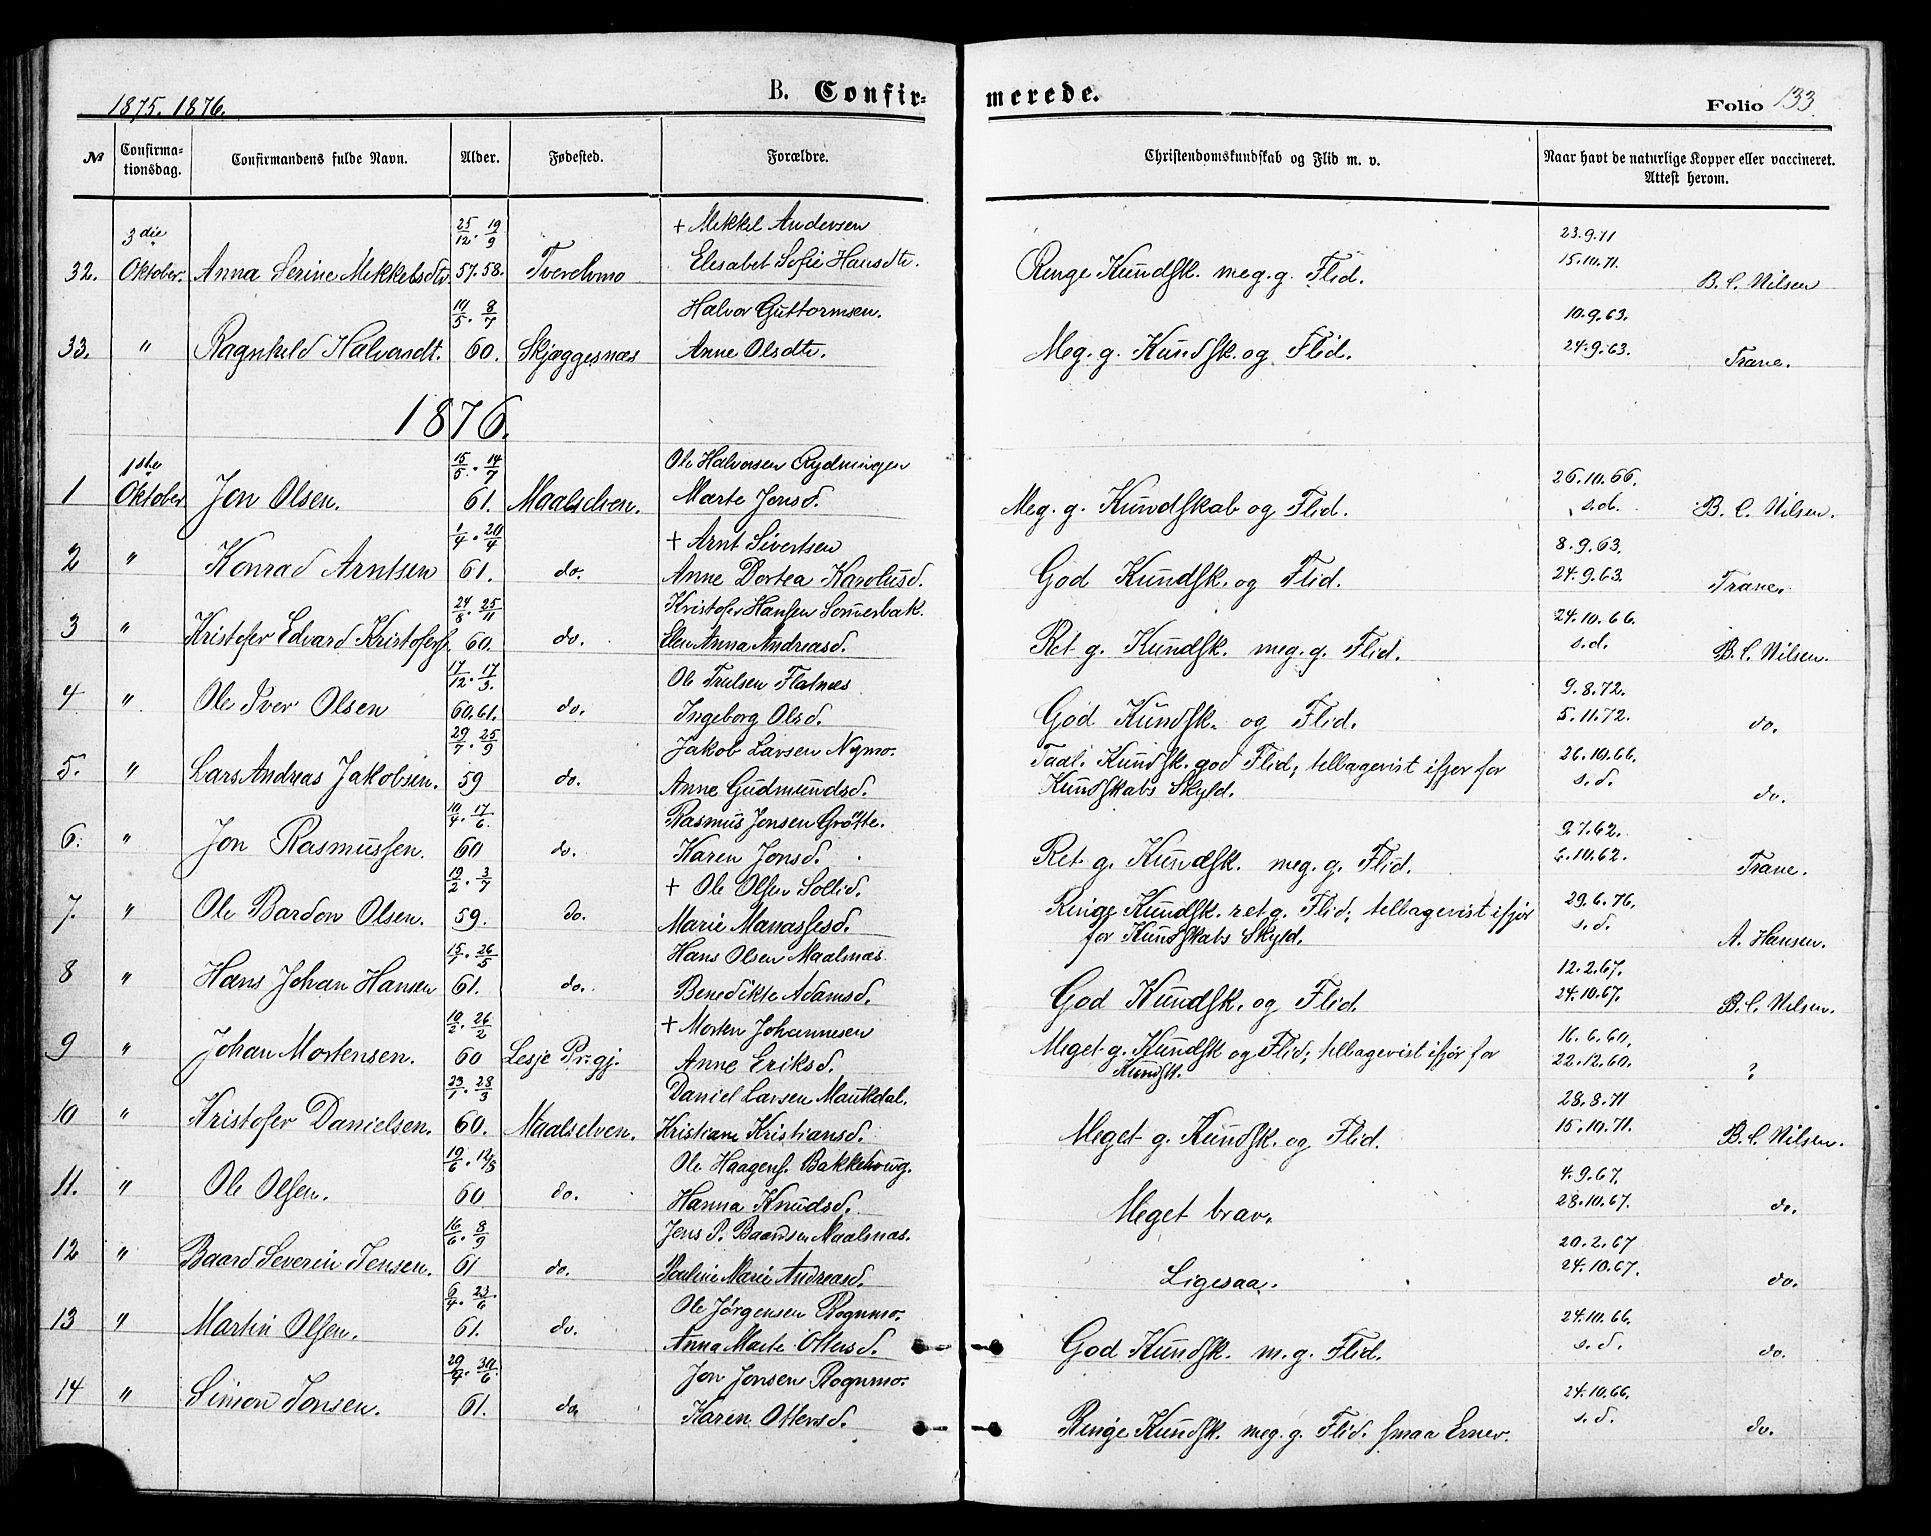 1875. 1876.
B. Confir-
merede.
Folio 133.
No
Confirma-
tionsdag.
Confirmandens fulde Navn.
Alder.
Fødested.
Forældre.
Christendomskundskab og Flid m. v.
Naar havt de naturlige Kopper eller vaccineret.
Attest herom.
3die 25/12 . 19/9 + Mekkel Andersen 23.9.71
32. Oktober. Anna Serine Mekkelsdtr. 57.58. Tverelvmo Elesabet Sofie Hansdtr. Ringe Kundsk. meg. g. Flid. 15.10.71. B. C. Nilsen
10/5 . 8/7 Halvor Guttormsen. 10.9.63.
33. " Ragnhild Halvorsdt. 60. Skjæggesnæs Anne Olsdtr. Meg. g. Kundsk. og Flid. 24.9.63. Trane.
1876.
1ste 15/5 . 14/7 Ole Halvorsen Rydningen 26.10.66.
1 Oktober Jon Olsen. 61. Maalselven. Marte Jonsd. Meg. g. Kundskab og Flid. s.d. B. C. Nilsen.
1/4 . 20/4 + Arnt Sivertsen 8.9.63.
2 " Konrad Arntsen 61. do. Anne Dortea Karolusd. God Kundsk. og Flid. 24.9.63. Trane.
24/8 . 25/11 Kristofer Hansen Somerbak. 24.10.66.
3 " Kristofer Edvard Kristofers. 60. do. Elen Anna Andreasd. Ret g. Kundsk. meg. g. Flid. s.d. B. C. Nilsen.
17/12 . 17/3. Ole Trulsen Flatnæs 9.8.72.
4 " Ole Iver Olsen 60.61. do. Ingeborg Olsd. God Kundsk. og Flid. 5.11.72. do.
29/7 . 25/9 Jakob Larsen Nymo. Taal. Kundsk. god Flid; tilbagevist ifjor for 26.10.66.
5. " Lars Andreas Jakobsen. 59 do. Anne Gudmundsd. Kundskabs Skyld. s.d. do.
10/4 . 17/6. Rasmus Jonsen Grøtte. 9.7.62.
6. " Jon Rasmussen. 60 do. Karen Jonsd. Ret g. Kundsk. meg. g. Flid. 6.10.62. Trane.
19/2 . 3/7 + Ole Olsen Sollid. Ringe Kundsk. ret g. Flid; tilbagevist ifjor 29.6.76.
7. " Ole Bardon Olsen. 59. do. Marie Manassesd. for Kundskabs Skyld. s.d. A. Hansen.
15/1 . 26/5 Hans Olsen Maalsnæs 12.2.67.
8 " Hans Johan Hansen 61. do. Benedikte Adamsd. God Kundsk. og Flid. 24.10.67. B. C. Nilsen.
10/2 . 26/2 + Morten Johannesen Meget g. Kundsk og Flid; tilbagevist ifjor for 16.6.60.
9 " Johan Mortensen. 60 Lesje Prgj. Anne Eriksd. Kundsk. 22.12.60. ?
23/1 . 28/3 Daniel Larsen Maukdal. 28.8.71
10 " Kristofer Danielsen. 60. Maalselven. Kristiane Kristiansd. Meget g. Kundsk. og Flid. 15.10.71. B. C. Nilsen.
19/6 . 12/8 Ole Haagens. Bakkehoug. 4.9.67.
11. " Ole Olsen. 60 do. Hanna Knudsd. Meget brav. 28.10.67. do.
16/6 . 8/9 Jens P. Baardsen Maalsnæs. 20.2.67
12 " Baard Severin Jensen. 61 do. Pauline Marie Andreasd. Ligesaa. 24.10.67. do.
6/4 . 23/6. Ole Jørgensen Rognmo. 24.10.66.
13 " Martin Olsen. 61. do. Anna Marte Ottersd. God Kundsk. m. g. Flid. s.d. do.
29/4 . 30/6. Jon Jonsen Rognmo. 24.10.66.
14 " Simon Jonsen. 61. do Karen Ottersd. Ringe Kundsk. meg. g. Flid. smaa Evner. s.d. do.